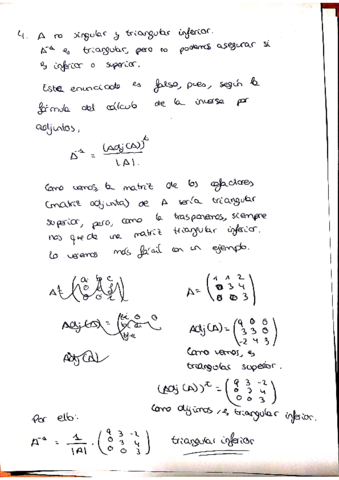 4. A no singular y triangular inferior.
A⁻¹ es triangular, pero no podemos asegurar si
es inferior o superior.
Este enunciado es falso, pues, según la
fórmula del cálculo de la inverse por
adjuntos,
A⁻¹ = (Adj(A))ᵗ / |A|.
Como vemos la matriz de los cofactores
(matriz adjunta) de A sería triangular
superior, pero, como la trasponemos, siempre
nos queda una matriz triangular inferior.
Lo veremos más fácil con un ejemplo.
A = (1 1 2
0 3 4
0 0 3)
Adj(A) =
Adj(A) = (9 0 0
3 3 0
-2 4 3)
Adj(A)
Como vemos, es
triangular superior.
(Adj(A))ᵗ = (9 3 -2
0 3 4
0 0 3)
Como dijimos, es triangular inferior.
Por ello:
A⁻¹ = 1/|A| · (9 3 -2
0 3 4
0 0 3) triangular inferior